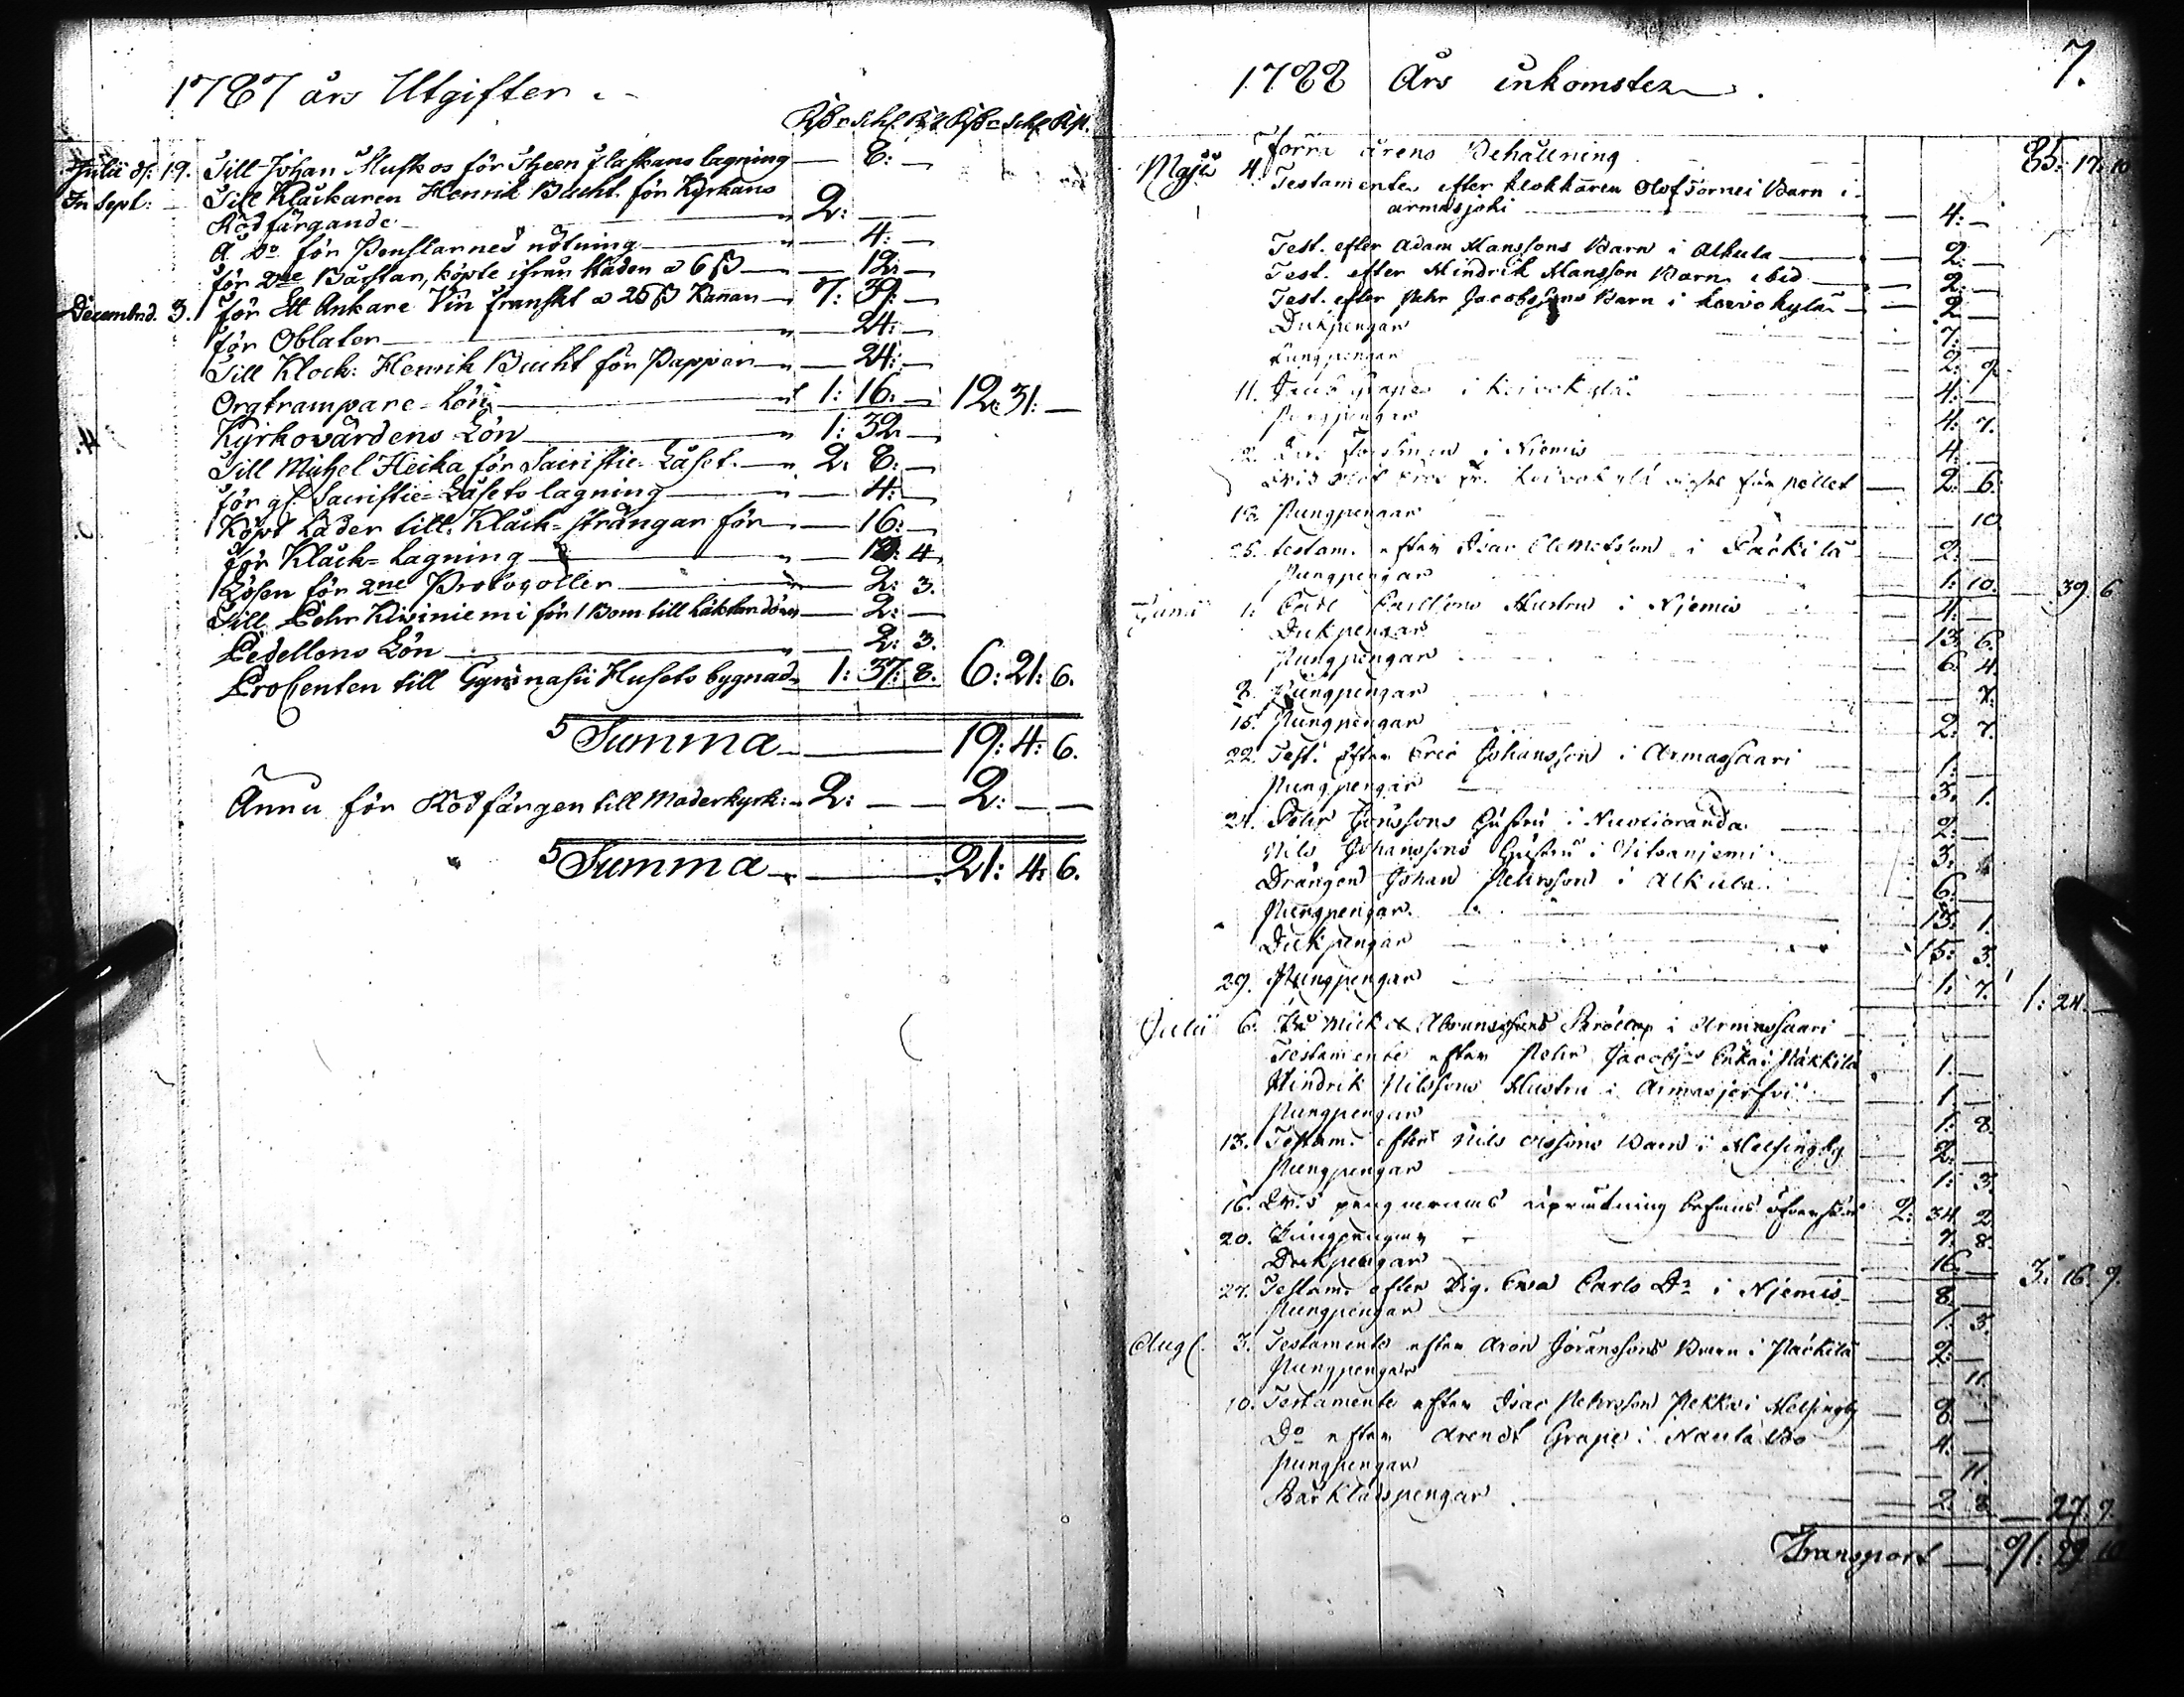 1787 års Utgifter.
Rdr schl. Rst Rdr schl. Rst.
Julii d. 19. Till Johan Huskos för Theen flaskans lagning — 8: —
In Sept: Till Klåckaren Henrik Bucht. för Kyrkans
Rödfärgande 2: — —
A Do för Penslarnes nötning — 4: —
för 2ne Bårstar, köpte ifrån Staden a 6 ß — 12: —
Decembr d. 3. för Ett Ankare Vin franskt a 25 ß Kanan 7: 39: —
för Oblater — 24: —
Till Klock: Henrik Bucht för Papper — 24: —
Orgtrampare-Lön 1: 16: — 12: 31: —
Kyrkovärdens Lön 1: 32 —
Till Michel Heika för Sacristie-Låset 2: 8: —
för gl. Sacristie-Låsets lagning — 4: —
Köpt Läder till Klåck-strängar för — 16: —
för Klåck-Lagning — 4
Lösen för 2ne Protocoller — 2: 3.
Till Pehr Kiviniemi för 1 Bom till Läktardören — 2: —
Pedellens Lön — 2: 3.
Procenten till Gymnasii Husets bygnad 1: 37: 8. 6: 21: 6.
Summa 19: 4: 6.
Ännu för Rödfärgen till Moderkyrk: 2: — — 2: — —
Summa 21: 4: 6.
7.
1788 Års inkomster.
förra årens Behållning 85: 17: 10
Maji 4. Testamente efter klokkaren Olof Barn i
armasjoki — 4: —
Test. efter Adam Hanssons Barn i Alkula — 2: —
Test. efter Hindrik Hansson Barn ibid — 2: —
Test. efter Pehr Jacobssons Barn i Koivokylä — 2 —
Dukpengar 7: —
Pungpengar 2: 9.
11. Grape i Koivokylä 4: —
Pungpengar 4: 7.
i Niemis 4: —
Koivokylä för pellet — 2: 6.
Pungpengar — 10
25. testam. efter Isac Clemetsson i Päckilä 2: —
Pungpengar 1: 10. — 39. 6
Junii 1. Carl Carlssons Hustru i Njemis 4: —
Dukpengar 13: 6.
Pungpengar 6: 4.
8. Pungpengar — 7.
15. Pungpengar 2: 7.
22. Test. efter Eric Johansson i Armassaari 1: —
Pungpengar 3: 1.
24. Pehr Jönssons Hustru i 2: —
Nils Johanssons Hustru i 3:
Drängen Johan Pehrsson i Alkula 6: —
Pungpengar 13: 1.
Dukpengar 15: 3.
29. Pungpengar 1: 7. 1: 24 —
Julii 6. Bröllop i Armassaari —
Testamente efter Pehr Jacobs Enka i Päkkilä 1: —
Hindrik Nilssons Hustru i Armasjerfvi 1 —
Pungpengar 1: 8.
13. Testam. efter Nils Olssons Barn i Helsingby 2: —
Pungpengar 1: 3.
16. 2: 34 2
20. Pungpengar 7: 8.
Dukpengar 16 — 3: 16. 9.
27. Testam. efter Pig. Ewa Carls Dr i Njemis 8: —
Pungpengar 1: 3.
Aug. 3. Testamente efter Aron Joranssons Barn i Päckilä 2: —
Pungpengar — 11.
10. Testamente efter Isac Pehrsson Pekka i Helsingby 8: —
Do efter Arendt Grape i 4: —
Pungpengar — 11
Bårklädspengar 2: 8 — 27. 9.
Transport — 91: 29. 10